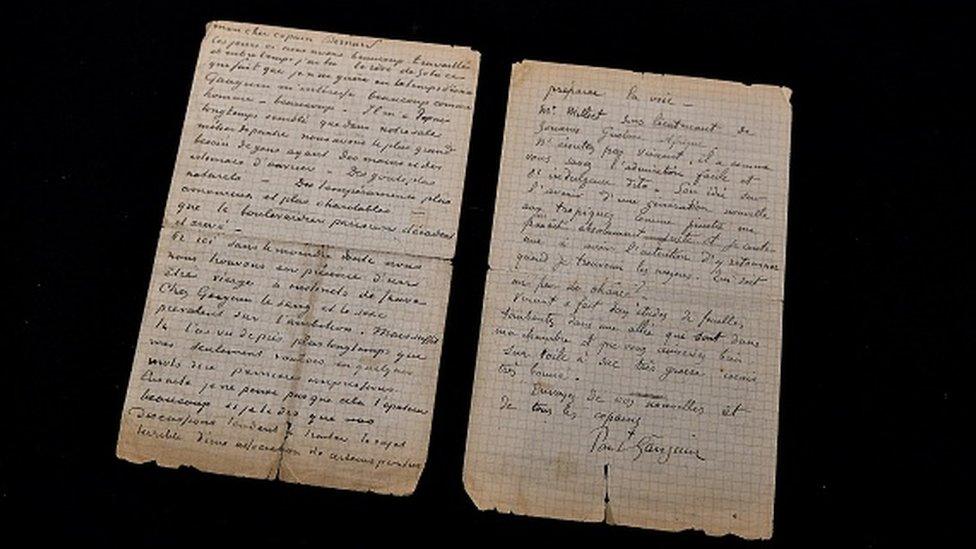 mon cher copain Bernard
Ces jours ci nous avons beaucoup travaillé
et entre temps j'ai lu le rêve de Zola ce
qui fait que je n'ai guère eu le temps d'écrire
Gauguin m'intéresse beaucoup comme
homme – beaucoup – Il m'a depuis
longtemps semblé que dans notre sale
métier de peintre nous avons le plus grand
besoin de gens ayant des mains et des
estomacs d'ouvrier – Des goûts plus
naturels – Des tempéraments plus
amoureux et plus charitables
que le boulevardier parisien décadent
et crevé –
Or ici sans le moindre doute nous
nous trouvons en présence d'un
être vierge à instincts de sauvage
Chez Gauguin le sang et le sexe
prévalent sur l'ambition. Mais suffit
tu l'as vu de près plus longtemps que
moi seulement voulais en quelques
mots dire premières impressions
Ensuite je ne pense pas que cela t'épatera
beaucoup si je te dis que nos
discussions tendent à traiter le sujet
terrible d'une association de certains peintres
préparer la voie –
Mr Milliet sous lieutenant de
Zouaves Guelma Afrique
N'écoutez pas Vincent, il a comme
vous savez l'admiration facile et
l'indulgence dito – Son idée sur
l'avenir d'une génération nouvelle
aux tropiques comme peintre me
paraît absolument juste et je conti-
nue à avoir l'intention d'y retourner
quand je trouverai les moyens. Qui sait
un peu de chance?
Vincent a fait deux études de feuilles
tombantes dans une allée qui sont dans
ma chambre et que vous aimeriez bien
Sur toile à sac très grosse mais
très bonne.
Envoyez de vos nouvelles et
de tous les copains
Paul Gauguin